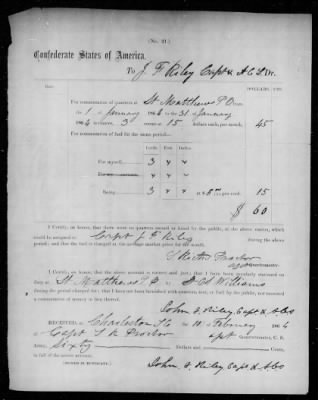 (No. 21.)
Confederate States of America,
To J. F. Riley Capt & A C S Dr.
Date. DOLLARS. CTS.
For commutation of quarters at St Matthews P O from
the 1 of January 1864 to the 31 of January
1864 3 rooms 15 dollars each, per month, 45
For commutation of fuel for the same period—
Cords.
For myself, 3
For
Being 3 at $ per cord, 15
$ 60
I Certify, on honor, that there were no quarters owned or hired by the public, at the above station, which
could be assigned to Capt J F Riley during the above
period; and that the fuel is charged at the average market price for the month.
I Certify, on honor, that the above account is correct and just; that I have been regularly stationed on
duty at St Matthews P O
during the period charged for; that I have not been furnished with quarters, rent, or fuel by the public, nor received
a commutation of money in lieu thereof.
John F. Riley Capt & Acs
RECEIVED at Charleston S C 10 of February 1864
of Capt Quartermaster, C. S.
Army, Sixty Dollars and Cents,
in full of the above account.
John F. Riley Capt & Acs
[SIGNED IN DUPLICATE.]